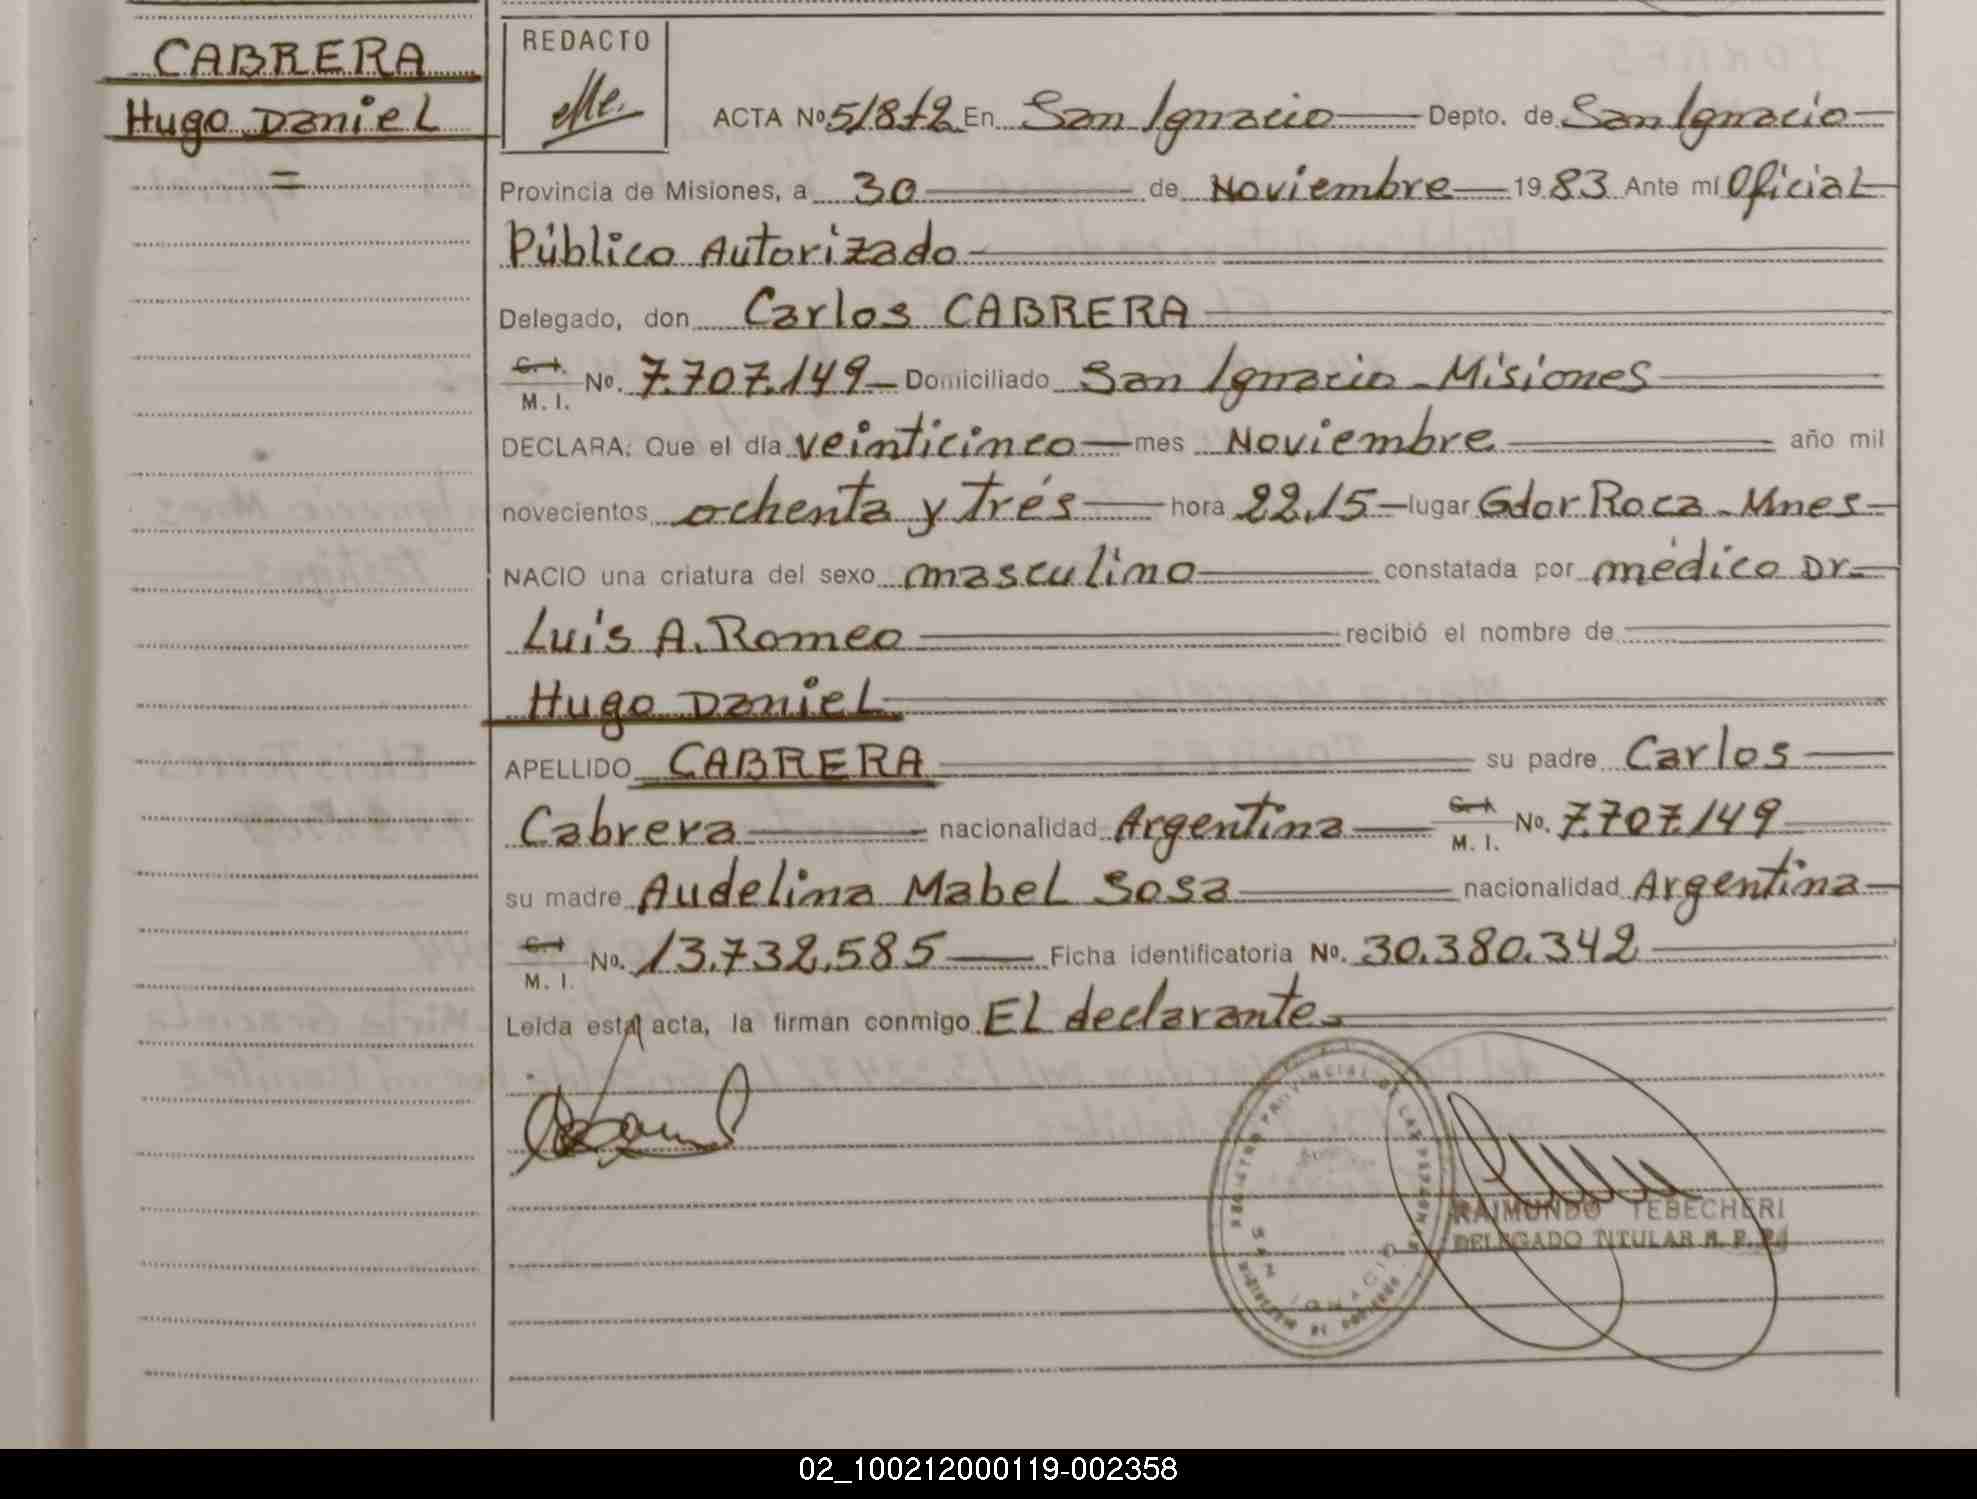 CABRERA
Hugo Daniel
=
REDACTO
ACTA Nº 518 t2 En San Ignacio Depto. de San Ignacio
Provincia de Misiones, a 30 de Noviembre 1983 Ante mí Oficial
Público Autorizado
Delegado, don Carlos CABRERA
C. I. M. I. No. 7.707.149 Domiciliado San Ignacio - Misiones
DECLARA: Que el día veinticinco mes Noviembre año mil
novecientos ochenta y trés hora 22,15 lugar Gdor Roca - Mnes
NACIO una criatura del sexo masculino constatada por médico Dr.
Luis A. Romeo recibió el nombre de
Hugo Daniel
APELLIDO CABRERA su padre Carlos
Cabrera nacionalidad Argentina C. I. M. I. No. 7.707.149
su madre Audelina Mabel Sosa nacionalidad Argentina
C. I. M. I. No. 13.732.585 Ficha identificatoria No. 30.380.342
Leída esta acta, la firman conmigo El declarante.
REGISTRO PROVINCIAL DE LAS PERSONAS
SAN IGNACIO
RAIMUNDO TEBECHERI
DELEGADO TITULAR R. P. P.
02_100212000119-002358